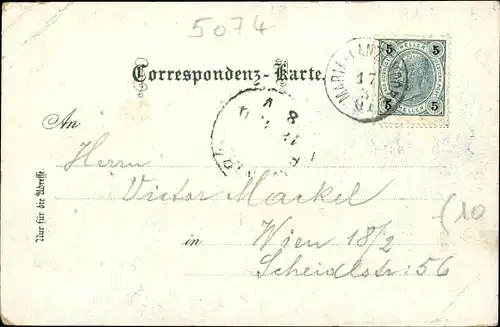 5074
Correspondenz-Karte.
MARIA-LANZ
17
5
01
5 5
HELLER
5 5
HELLER
8
An
Herrn
Victor Mackel
Nur für die Adresse.
(10
in Wien 18/2
Scheidlstr: 56